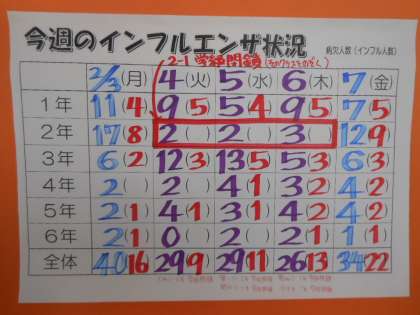 今週のインフルエンザ状況 病欠人数(インフル人数)
2-1 学級閉鎖
2/3(月) 4(火) 5(水) 6(木) 7(金)
1年 11(4) 9(5) 5(4) 9(5) 7(5)
2年 17(8) 2( ) 2( ) 3( ) 12(9)
3年 6(2) 12(3) 13(5) 5(3) 6(3)
4年 2( ) 2( ) 4(1) 3(2) 4(2)
5年 2(1) 4(1) 3(1) 4(2) 4(2)
6年 2(1) 0( ) 2( ) 2(1) 1(1)
全体 40(16) 29(9) 29(11) 26(13) 34(22)